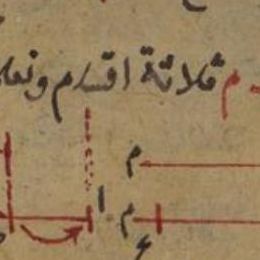 م ثلاثة اقسام ونعلم
م
ا م
ع